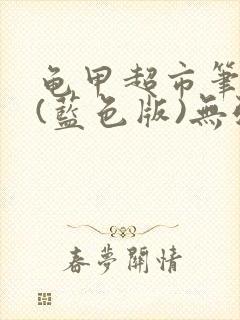 龟甲超市筆
(藍色版)無
春夢關情